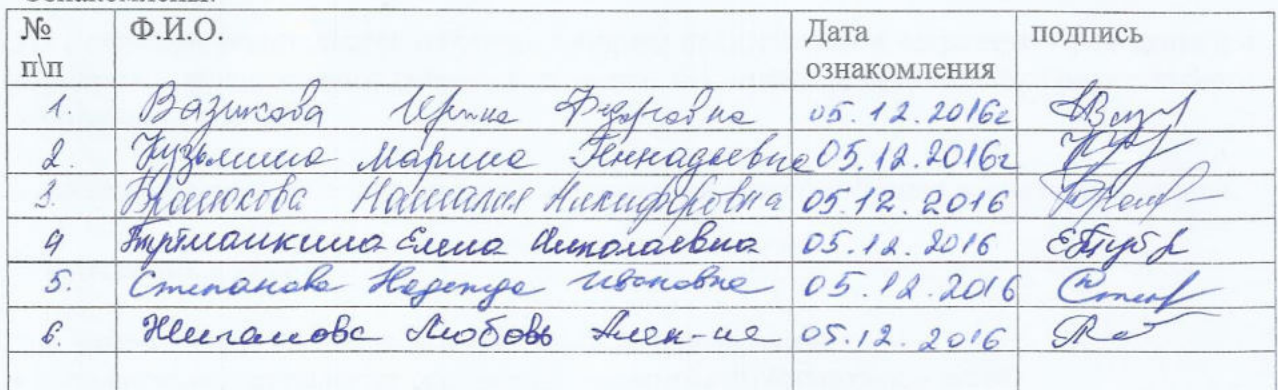 № п\п Ф.И.О. Дата ознакомления подпись
1. Вазикова Ирина Федоровна 05.12.2016г
2. Кузьмина Марина Геннадьевна 05.12.2016г
3. Наталия Никифоровна 05.12.2016
4 Елена Николаевна 05.12.2016
5. Степанова Надежда Ивановна 05.12.2016
6. Жигалова Любовь Алек-на 05.12.2016